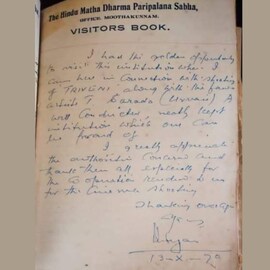 The Hindu Matha Dharma Paripalana Sabha,
OFFICE: MOOTHAKUNNAM.
VISITORS BOOK.
I had the golden opportunity
to visit this institution when I
came here in connection with shooting
of TRIVENI along with the famous
artists T Sarada (Urvasi) A
well conducted neatly kept
institution which one can
be proud of.
I greatly appreciate
the authorities concerned and
thank them all especially for
the co operation rendered to us
for the cinema shooting
Thanking once again
Yours,
13-X-70